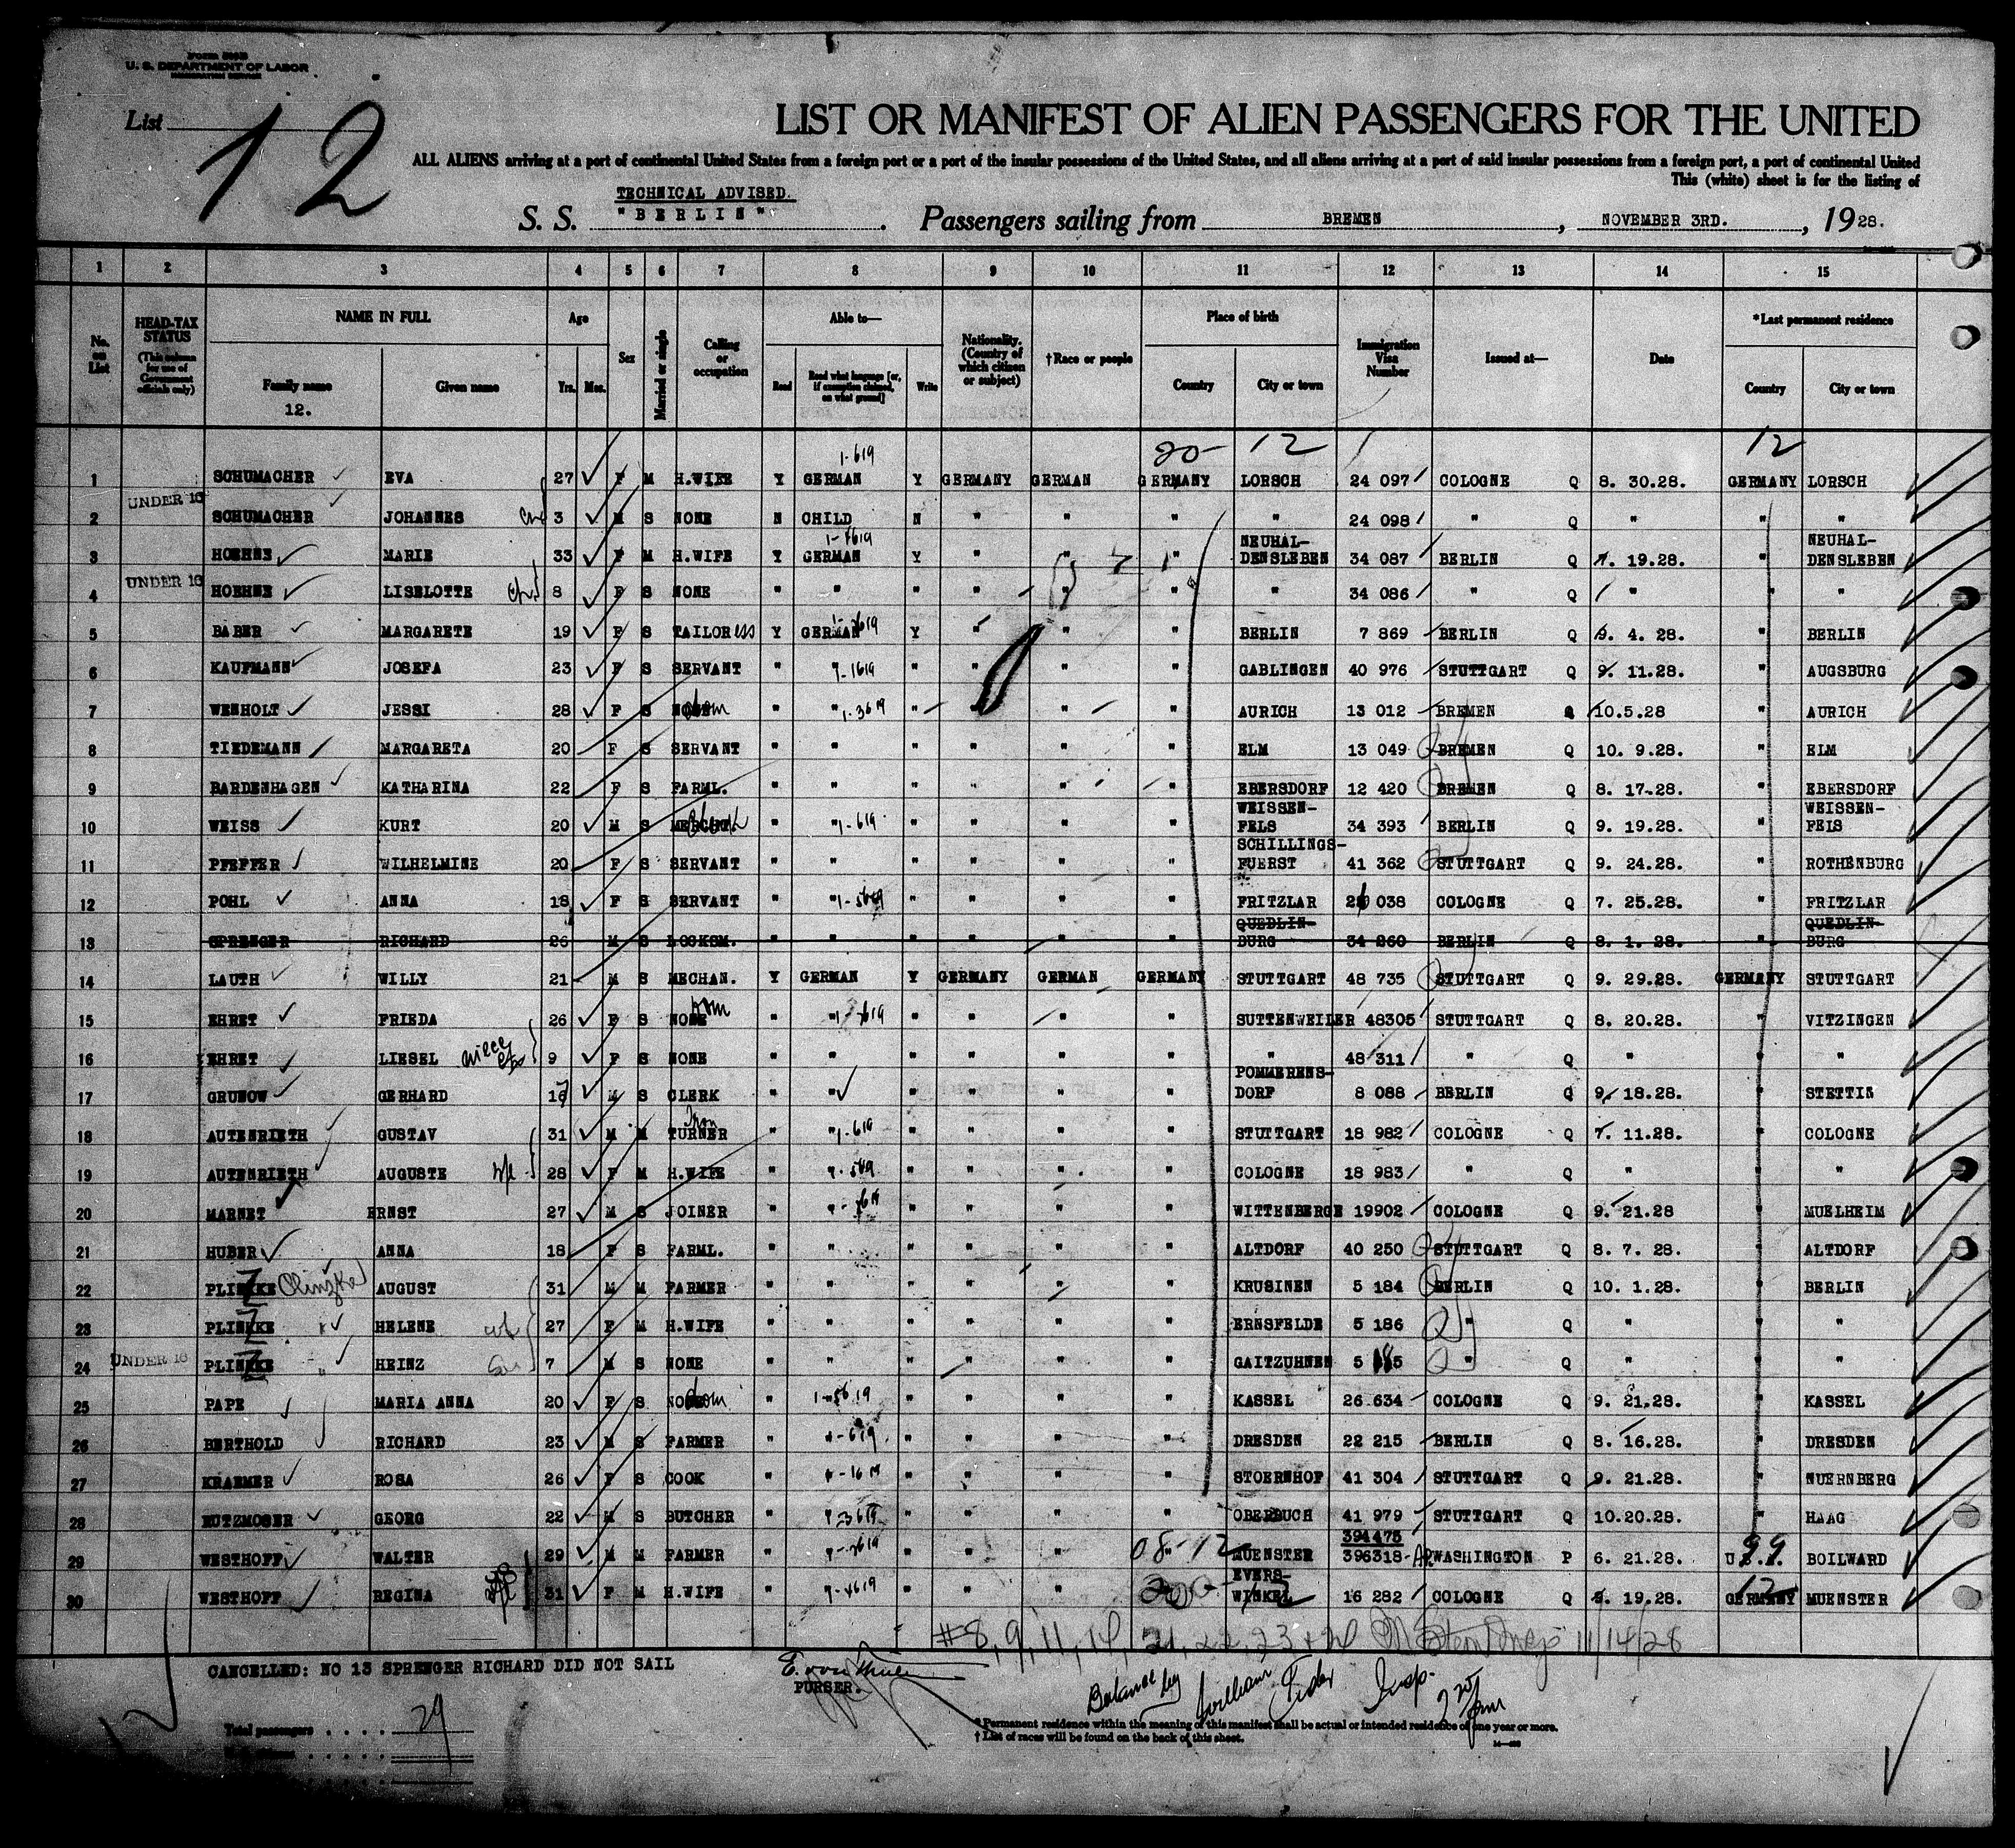 FORM 500B
U. S. DEPARTMENT OF LABOR
IMMIGRATION SERVICE
List 12
LIST OR MANIFEST OF ALIEN PASSENGERS FOR THE UNITED
ALL ALIENS arriving at a port of continental United States from a foreign port or a port of the insular possessions of the United States, and all aliens arriving at a port of said insular possessions from a foreign port, a port of continental United
This (white) sheet is for the listing of
TECHNICAL ADVISED.
S. S. "BERLIN". Passengers sailing from BREMEN, NOVEMBER 3RD., 1928.
1 2 3 4 5 6 7 8 9 10 11 12 13 14 15
No. on List
HEAD-TAX STATUS (This column for use of Government officials only)
NAME IN FULL
Family name
12.
Given name
Age
Yrs. Mos.
Sex
Married or single
Calling or occupation
Able to—
Read
Read what language [or, if exemption claimed, on what ground]
Write
Nationality. (Country of which citizen or subject)
†Race or people
Place of birth
Country
City or town
Immigration Visa Number
Issued at—
Date
*Last permanent residence
Country
City or town
1-619 20- 12 12
1 SCHUMACHER EVA 27 F M H.WIFE Y GERMAN Y GERMANY GERMAN GERMANY LORSCH 24 097 COLOGNE Q 8. 30.28. GERMANY LORSCH
UNDER 16
2 SCHUMACHER JOHANNES 3 M S NONE N CHILD N " " " " 24 098 " Q " " "
3 HOEHNE MARIE 33 F M H.WIFE Y GERMAN Y " " " NEUHAL-DENSLEBEN 34 087 BERLIN Q 7. 19.28. " NEUHAL-DENSLEBEN
UNDER 16
4 HOEHNE LISELOTTE 8 F S NONE " " " " " " " 34 086 " Q " " "
5 BABER MARGARETE 19 F S TAILORess Y GERMAN Y " " " BERLIN 7 869 BERLIN Q 9. 4. 28. " BERLIN
6 KAUFMANN JOSEFA 23 F S SERVANT " " " " " GABLINGEN 40 976 STUTTGART Q 9. 11.28. " AUGSBURG
7 WENHOLT JESSI 28 F S NONE dom " " 1-3619 " " " " AURICH 13 012 BREMEN Q 10.5.28 " AURICH
8 TIEDEMANN MARGARETA 20 F S SERVANT " " " " " " ELM 13 049 BREMEN Q 10. 9.28. " ELM
9 BARDENHAGEN KATHARINA 22 F S FARML. " " " " " " EBERSDORF 12 420 BREMEN Q 8. 17.28. " EBERSDORF
10 WEISS KURT 20 M S MERCHT. " "1-619 " " " " WEISSEN-FELS 34 393 BERLIN Q 9. 19.28. " WEISSEN-FELS
11 PFEFFER WILHELMINE 20 F S SERVANT " " " " " " SCHILLINGS-FUERST 41 362 STUTTGART Q 9. 24.28. " ROTHENBURG
12 POHL ANNA 18 F S SERVANT " " " " " " FRITZLAR 038 COLOGNE Q 7. 25.28. " FRITZLAR
13 SPRENGER RICHARD 26 M S LOCKSM. " " " " " " QUEDLIN-BURG 34 260 BERLIN Q 8. 1. 28. " QUEDLIN-BURG
14 LAUTH WILLY 21 M S MECHAN. Y GERMAN Y GERMANY GERMAN GERMANY STUTTGART 48 735 STUTTGART Q 9. 29.28. GERMANY STUTTGART
15 EHRET FRIEDA 26 F S NONE dom " " " " " " SUTTENWEILER 48305 STUTTGART Q 8. 20.28. " VITZINGEN
16 EHRET LIESEL niece 9 F S NONE " " " " " " " 48 311 " Q " " "
17 GRUNOW GERHARD 17 M S CLERK " " " " " " POMMERENS-DORF 8 088 BERLIN Q 9. 18.28. " STETTIN
18 AUTENRIETH GUSTAV 31 M M TURNER Iron " "1-619 " " " " STUTTGART 18 982 COLOGNE Q 7. 11.28. " COLOGNE
19 AUTENRIETH AUGUSTE wife 28 F M H.WIFE " " " " " " COLOGNE 18 983 " Q " " "
20 MARNET ERNST 27 M S JOINER " " " " " " WITTENBERGE 19902 COLOGNE Q 9. 21.28 " MUELHEIM
21 HUBER ANNA 18 F S FARML. " " " " " " ALTDORF 40 250 STUTTGART Q 8. 7. 28. " ALTDORF
22 PLINZKE Plinzke AUGUST 31 M M FARMER " " " " " " KRUSINEN 5 184 BERLIN Q 10. 1.28. " BERLIN
23 PLINZKE " HELENE wf 27 F M H.WIFE " " " " " " ERNSFELDE 5 186 " Q " " "
UNDER 16
24 PLINZKE " HEINZ 7 M S NONE " " " " " " GAITZUHNEN 5 185 " Q " " "
25 PAPE MARIA ANNA 20 F S NONE dom " 1-5619 " " " " KASSEL 26.634 COLOGNE Q 9. 21.28. " KASSEL
26 BERTHOLD RICHARD 23 M S FARMER " "-619 " " " " DRESDEN 22 215 BERLIN Q 8. 16.28. " DRESDEN
27 KRAEMER ROSA 26 F S COOK " "-1619 " " " " STOERNHOF 41 304 STUTTGART Q 9. 21.28. " NUERNBERG
28 HUTZMOSER GEORG 22 M S BUTCHER " "-3619 " " " " OBERBUCH 41 979 STUTTGART Q 10.20.28. " HAAG
394475
29 WESTHOFF WALTER 29 M M FARMER " " " " " 08-12 MUENSTER 396318 WASHINGTON P 6. 21.28. U.S. 99 BOILWARD
30 WESTHOFF REGINA wife 31 F M H.WIFE " "-4619 " " " EVERS-WINKEL 16 282 COLOGNE Q 9. 19.28. GERMANY 12 MUENSTER
#8, 9, 11, 14, 21, 22, 23 + 24 11/14/28
CANCELLED: NO 13 SPRENGER RICHARD DID NOT SAIL
PURSER.
Balance by William Insp.
Total passengers . . . . 29
* Permanent residence within the meaning of this manifest shall be actual or intended residence of one year or more.
† List of races will be found on the back of this sheet.